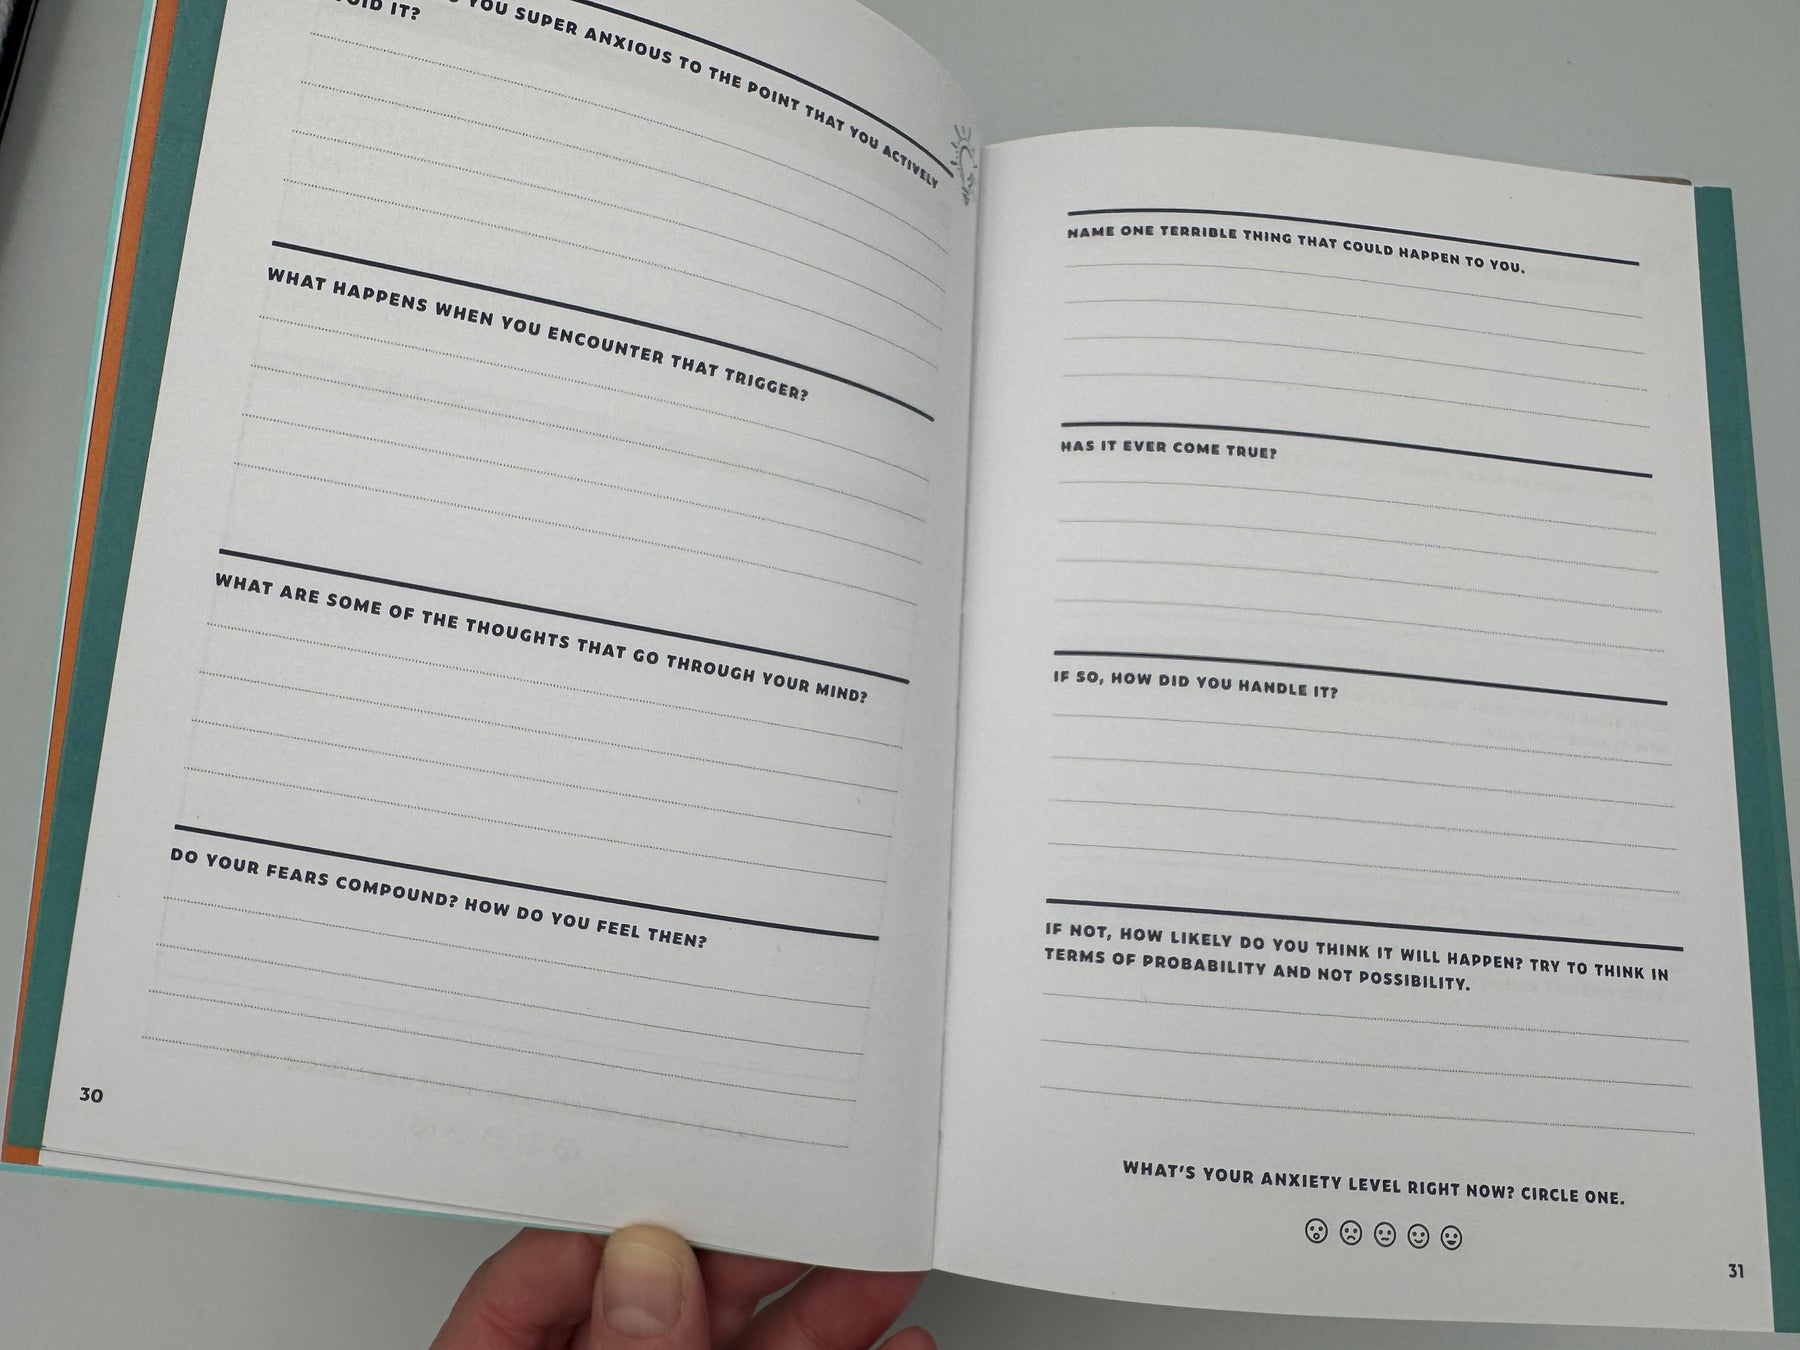 YOU SUPER ANXIOUS TO THE POINT THAT YOU ACTIVELY
IT?
WHAT HAPPENS WHEN YOU ENCOUNTER THAT TRIGGER?
WHAT ARE SOME OF THE THOUGHTS THAT GO THROUGH YOUR MIND?
DO YOUR FEARS COMPOUND? HOW DO YOU FEEL THEN?
30
NAME ONE TERRIBLE THING THAT COULD HAPPEN TO YOU.
HAS IT EVER COME TRUE?
IF SO, HOW DID YOU HANDLE IT?
IF NOT, HOW LIKELY DO YOU THINK IT WILL HAPPEN? TRY TO THINK IN
TERMS OF PROBABILITY AND NOT POSSIBILITY.
WHAT'S YOUR ANXIETY LEVEL RIGHT NOW? CIRCLE ONE.
31